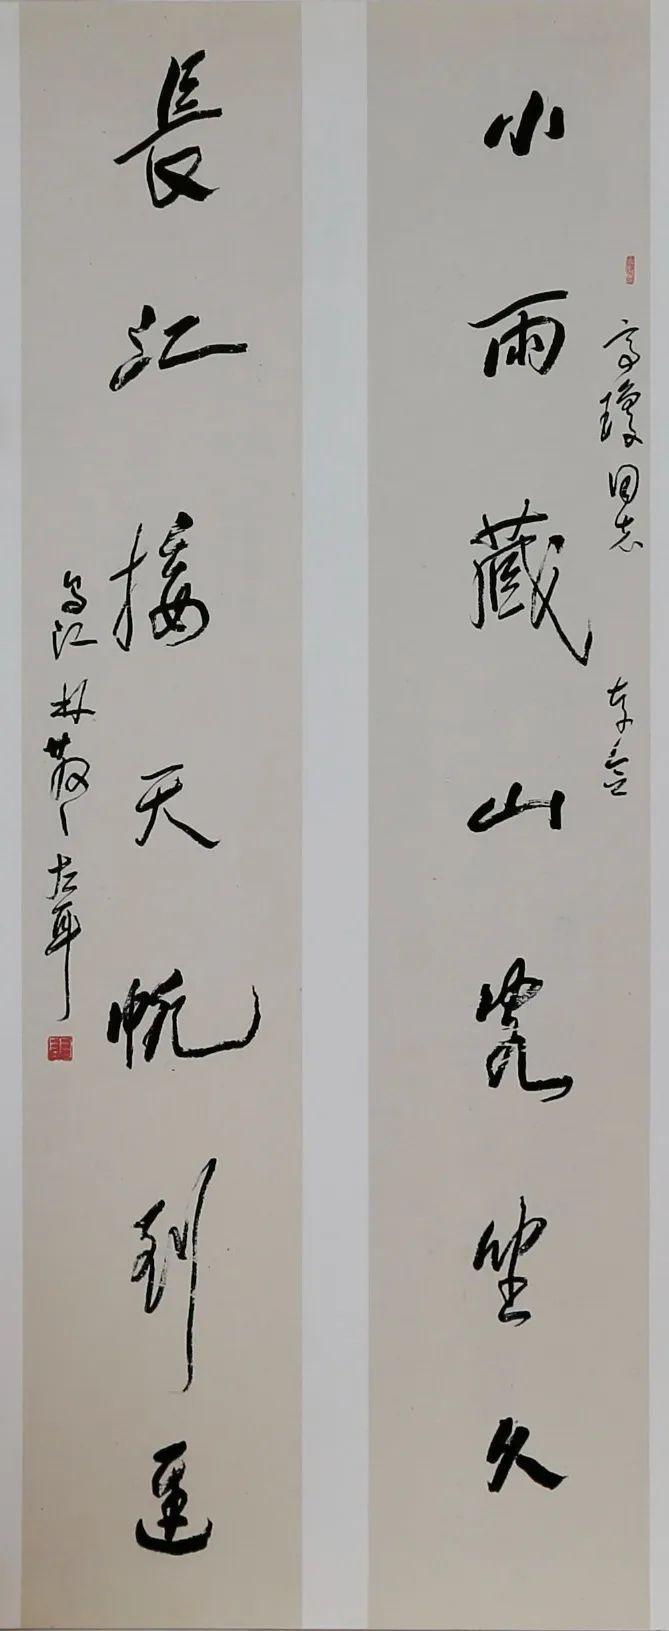 高瓊同志
小雨藏山客坐久
長江接天帆到遲
烏江林散之左耳